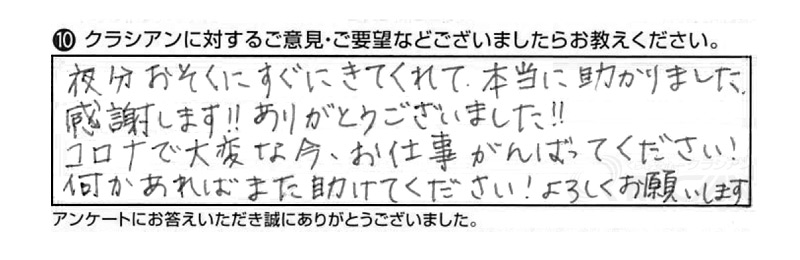 ⑩ クラシアンに対するご意見・ご要望などございましたらお教えください。
夜分おそくにすぐにきてくれて、本当に助かりました。
感謝します!!ありがとうございました!!
コロナで大変な今、お仕事がんばってください!
何かあればまた助けてください!よろしくお願いします
アンケートにお答えいただき誠にありがとうございました。